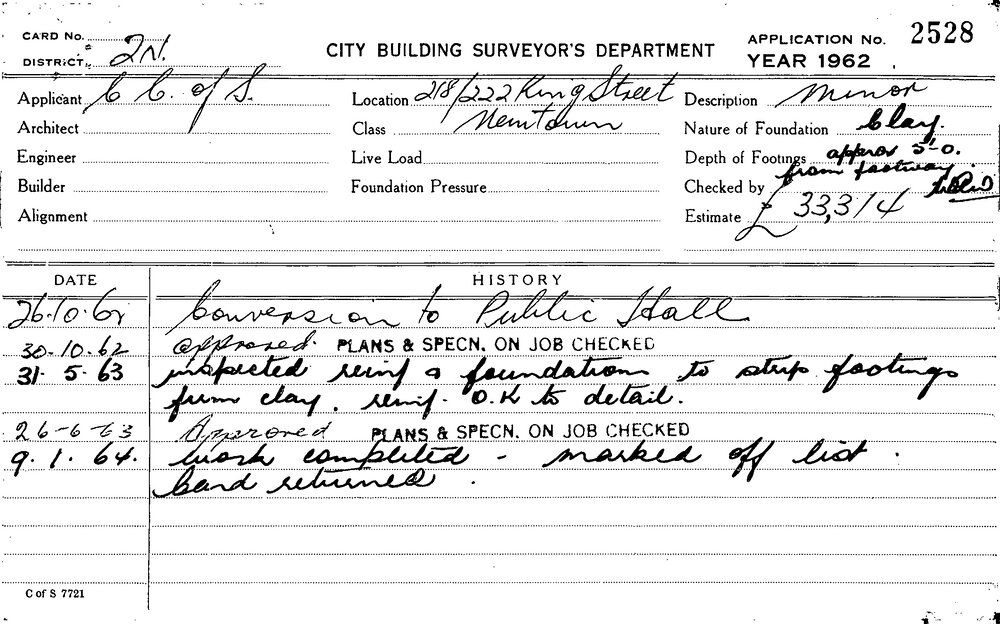 CARD No.
DISTRICT. 2N.
CITY BUILDING SURVEYOR'S DEPARTMENT
APPLICATION No. 2528
YEAR 1962
Applicant C C. of S.
Location 218/222 King Street
Newtown
Description Minor
Architect
Class
Nature of Foundation Clay.
Engineer
Live Load
Depth of Footings approx 5'-0.
from footway
Builder
Foundation Pressure
Checked by
Alignment
Estimate £ 33,314
DATE HISTORY
26.10.62 Conversion to Public Hall
30.10.62 approved. PLANS & SPECN. ON JOB CHECKED
31.5.63 inspected reinf & foundations to strip footings
firm clay. reinf. O.K to detail.
26-6-63 Approved PLANS & SPECN. ON JOB CHECKED
9.1.64. work completed - marked off list.
Card returned.
C of S 7721